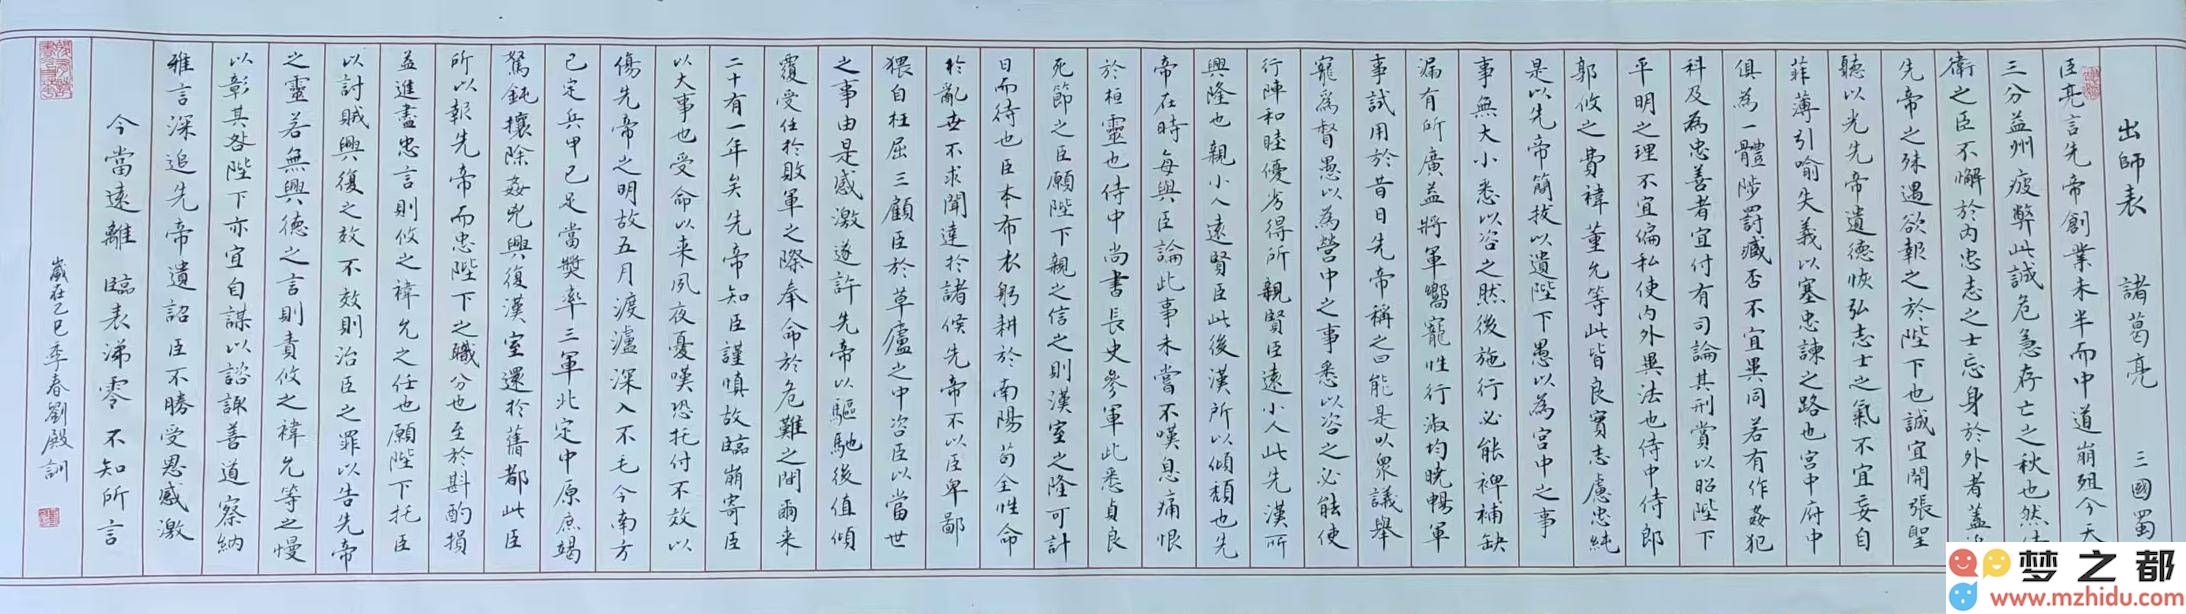 出師表 諸葛亮 三國蜀
臣亮言先帝創業未半而中道崩殂今天
三分益州疲弊此誠危急存亡之秋也然侍
衛之臣不懈於內忠志之士忘身於外者蓋
先帝之殊遇欲報之於陛下也誠宜開張聖
聽以光先帝遺德恢弘志士之氣不宜妄自
菲薄引喻失義以塞忠諫之路也宮中府中
俱為一體陟罰臧否不宜異同若有作姦犯
科及為忠善者宜付有司論其刑賞以昭陛下
平明之理不宜偏私使內外異法也侍中侍郎
郭攸之費禕董允等此皆良實志慮忠純
是以先帝簡拔以遺陛下愚以為宮中之事
事無大小悉以咨之然後施行必能裨補缺
漏有所廣益將軍嚮寵性行淑均曉暢軍
事試用於昔日先帝稱之曰能是以衆議舉
寵爲督愚以為營中之事悉以咨之必能使
行陣和睦優劣得所親賢臣遠小人此先漢所
興隆也親小人遠賢臣此後漢所以傾頹也先
帝在時每與臣論此事未嘗不嘆息痛恨
於桓靈也侍中尚書長史參軍此悉貞良
死節之臣願陛下親之信之則漢室之隆可計
日而待也臣本布衣躬耕於南陽苟全性命
於亂世不求聞達於諸候先帝不以臣卑鄙
猥自枉屈三顧臣於草廬之中咨臣以當世
之事由是感激遂許先帝以驅馳後值傾
覆受任於敗軍之際奉命於危難之間爾來
二十有一年矣先帝知臣謹慎故臨崩寄臣
以大事也受命以来夙夜憂嘆恐托付不效以
傷先帝之明故五月渡瀘深入不毛今南方
已定兵甲已足當獎率三軍北定中原庶竭
駑鈍攘除姦兇興復漢室還於舊都此臣
所以報先帝而忠陛下之職分也至於斟酌損
益進盡忠言則攸之禕允之任也願陛下托臣
以討賊興復之效不效則治臣之罪以告先帝
之靈若無興德之言則責攸之禕允等之慢
以彰其咎陛下亦宜自謀以諮諏善道察納
雅言深追先帝遺詔臣不勝受恩感激
今當遠離臨表涕零不知所言
歲在乙巳季春劉殿訓
梦之都
www.mzhidu.com